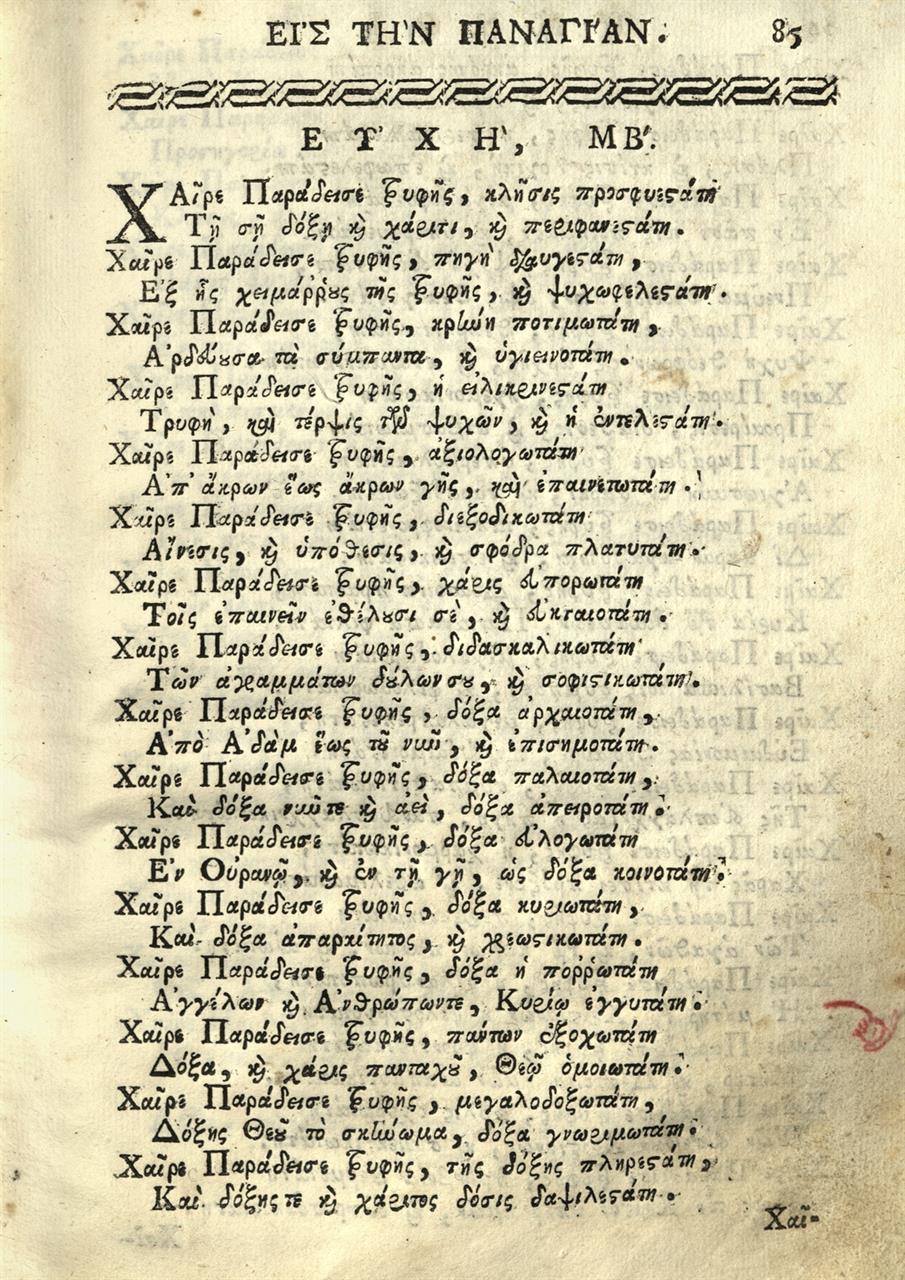 ΕΙ'Σ ΤΗ'Ν ΠΑΝΑΓΙ'ΑΝ. 85
ΕΥ'ΧΗ', ΜΒ'.
ΧΑῖρε Παράδεισε τρυφῆς, κλῆσις προσφυεστάτη
Τῇ σῇ δόξῃ καὶ χάριτι, καὶ περιφανεστάτη.
Χαῖρε Παράδεισε τρυφῆς, πηγὴ διαυγεστάτη,
Εξ ἧς χειμάῤῥους τῆς τρυφῆς, καὶ ψυχωφελεστάτη.
Χαῖρε Παράδεισε τρυφῆς, κρήνη ποτιμωτάτη,
Α'ρδεύουσα τὰ σύμπαντα, καὶ ὑγιεινοτάτη.
Χαῖρε Παράδεισε τρυφῆς, ἡ εἰλικρινεστάτη
Τρυφὴ, καὶ τέρψις τῶν ψυχῶν, καὶ ἡ ἐντελεστάτη.
Χαῖρε Παράδεισε τρυφῆς, ἀξιολογωτάτη
Α'π' ἄκρων ἕως ἄκρων γῆς, καὶ ἐπαινετωτάτη.
Χαῖρε Παράδεισε τρυφῆς, διεξοδικωτάτη
Αἴνεσις, καὶ ὑπόθεσις, καὶ σφόδρα πλατυτάτη.
Χαῖρε Παράδεισε τρυφῆς, χάρις εὐπορωτάτη
Τοῖς ἐπαινεῖν ἐθέλουσί σὲ, καὶ εὐκταιοτάτη.
Χαῖρε Παράδεισε τρυφῆς, διδασκαλικωτάτη
Τῶν ἀγραμμάτων δούλων σου, καὶ σοφιστικωτάτη.
Χαῖρε Παράδεισε τρυφῆς, δόξα ἀρχαιοτάτη,
Α'πὸ Α'δὰμ ἕως τοῦ νῦν, καὶ ἐπισημοτάτη.
Χαῖρε Παράδεισε τρυφῆς, δόξα παλαιοτάτη,
Καὶ δόξα νῦντε καὶ ἀεὶ, δόξα ἀπειροτάτη.
Χαῖρε Παράδεισε τρυφῆς, δόξα εὐλογωτάτη
Ε'ν Οὐρανῷ, καὶ ἐν τῇ γῇ, ὡς δόξα κοινοτάτη.
Χαῖρε Παράδεισε τρυφῆς, δόξα κυριωτάτη,
Καὶ δόξα ἀπαραίτητος, καὶ χρεωστικωτάτη.
Χαῖρε Παράδεισε τρυφῆς, δόξα ἡ ποῤῥωτάτη
Α'γγέλων καὶ Α'νθρώπωντε, Κυρίῳ ἐγγυτάτη.
Χαῖρε Παράδεισε τρυφῆς, πάντων ἐξοχωτάτη
Δόξα, καὶ χάρις πανταχοῦ, Θεῷ ὁμοιωτάτη.
Χαῖρε Παράδεισε τρυφῆς, μεγαλοδοξωτάτη,
Δόξης Θεοῦ τὸ σκήνωμα, δόξα γνωριμωτάτη.
Χαῖρε Παράδεισε τρυφῆς, τῆς δόξης πληρεστάτη,
Καὶ δόξης τε καὶ χάριτος δόσις δαψιλεστάτη.
Χαῖ-